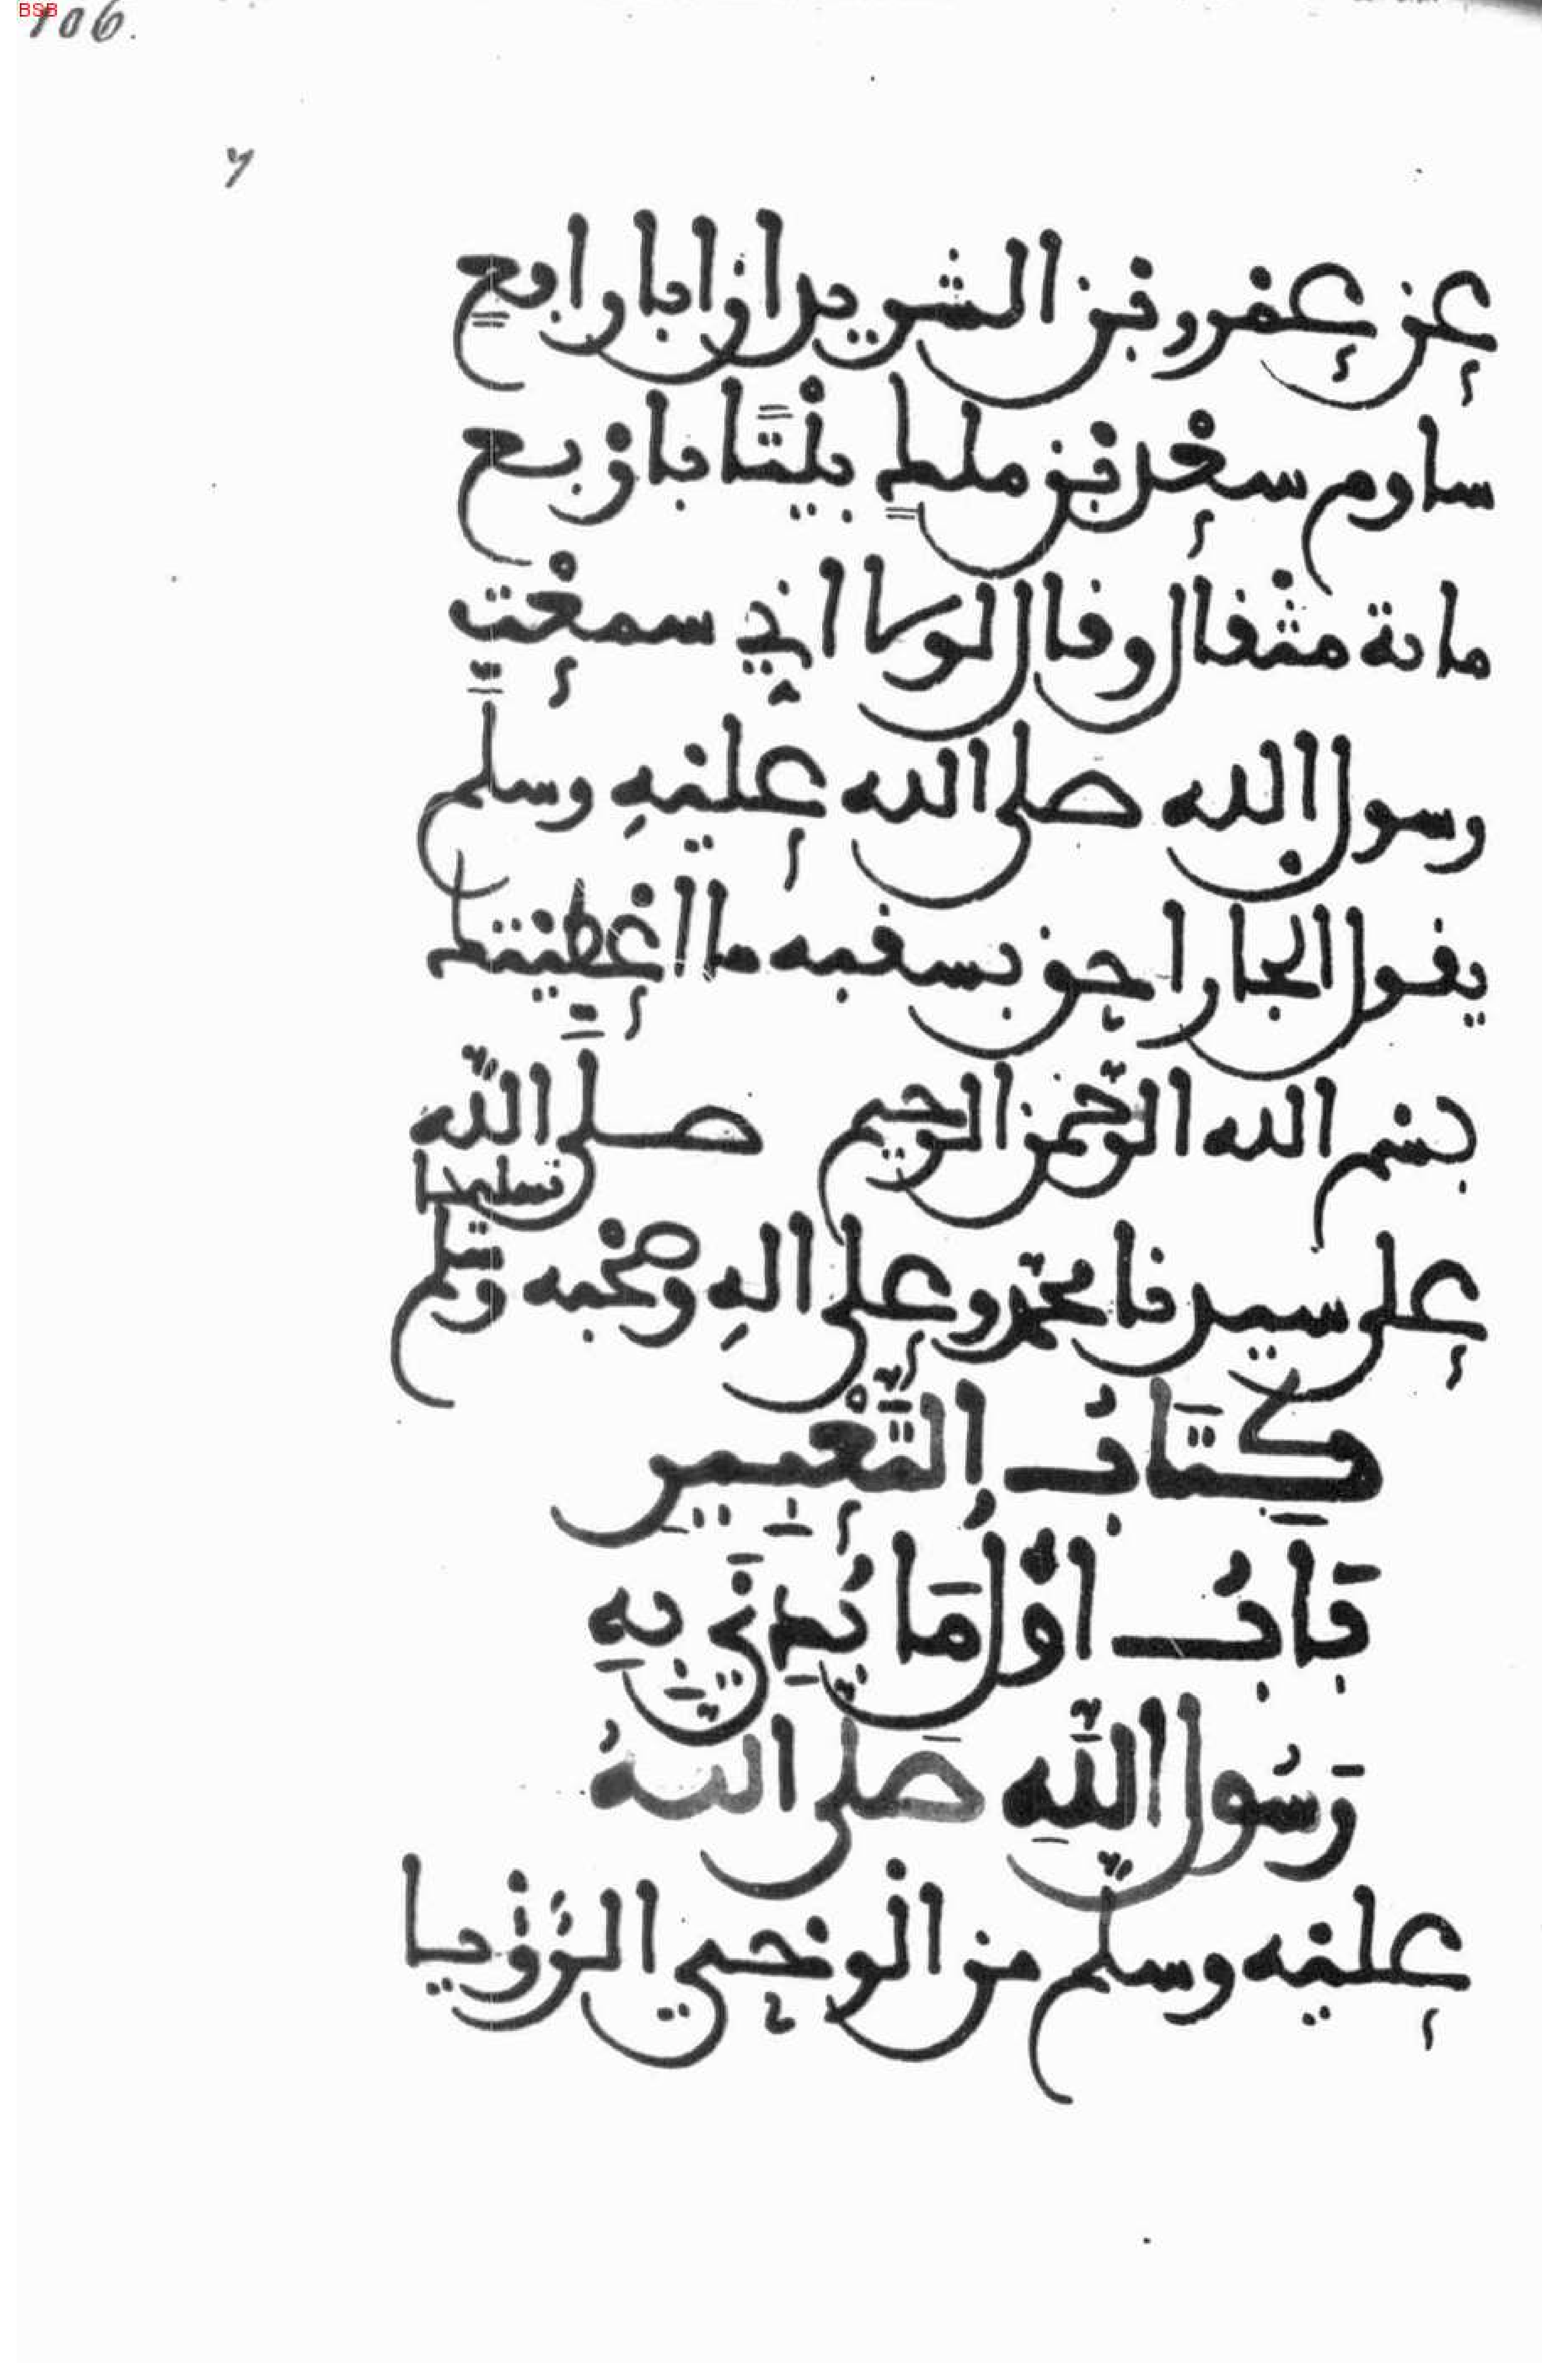 BSB
106.
عن عمرو بن الشريد ان ابا رافع
ساوم سعد بن ملك بيتا باربع
ماىة مثفال وفال لولا اني سمعت
رسول الله صلى الله عليه وسلم
يفول الجار احق بسفبه ما اعطيتك
بسم الله الرحمن الرحيم صلى الله
على سيدنا محمد وعلى اله وصحبه وسلم
تسليما
كِتَابُ التَّعْبِيرِ
بَابُ اوَّلُ مَا بُدِئَ بِهِ
رَسُولُ اللَّهِ صَلى اللهُ
عليه وسلّم من الْوحي الرُّؤْيا